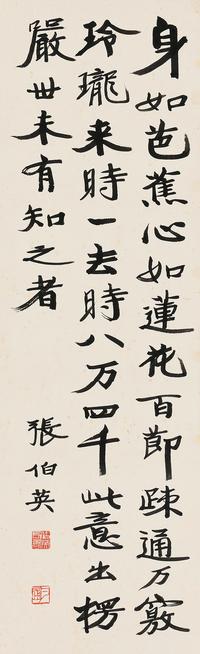 身如芭蕉心如蓮花百節疎通万竅
玲瓏来時一去時八万四千此意出楞
嚴世未有知之者
張伯英